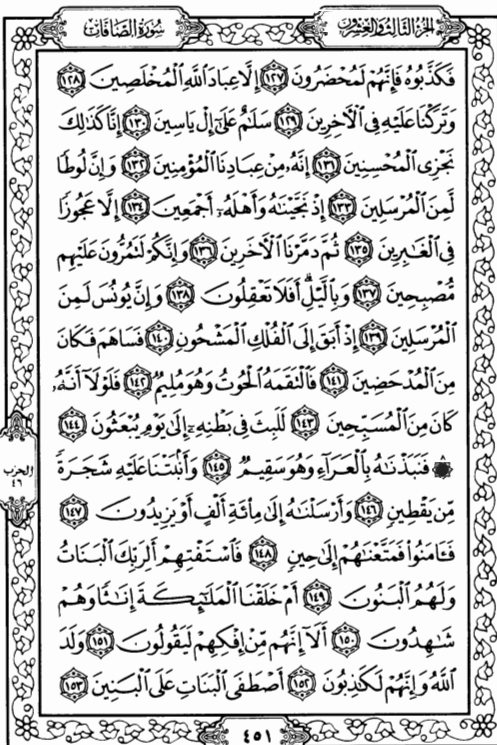 الجزء الثالث والعشرون
سورة الصافات
فَكَذَّبُوهُ فَإِنَّهُمْ لَمُحْضَرُونَ ١٢٧ إِلَّا عِبَادَ اللَّهِ الْمُخْلَصِينَ ١٢٨
وَتَرَكْنَا عَلَيْهِ فِي الْآخِرِينَ ١٢٩ سَلَامٌ عَلَىٰ إِلْ يَاسِينَ ١٣٠ إِنَّا كَذَٰلِكَ
نَجْزِي الْمُحْسِنِينَ ١٣١ إِنَّهُ مِنْ عِبَادِنَا الْمُؤْمِنِينَ ١٣٢ وَإِنَّ لُوطًا
لَّمِنَ الْمُرْسَلِينَ ١٣٣ إِذْ نَجَّيْنَاهُ وَأَهْلَهُ أَجْمَعِينَ ١٣٤ إِلَّا عَجُوزًا
فِي الْغَابِرِينَ ١٣٥ ثُمَّ دَمَّرْنَا الْآخَرِينَ ١٣٦ وَإِنَّكُمْ لَتَمُرُّونَ عَلَيْهِم
مُّصْبِحِينَ ١٣٧ وَبِاللَّيْلِ ۗ أَفَلَا تَعْقِلُونَ ١٣٨ وَإِنَّ يُونُسَ لَمِنَ
الْمُرْسَلِينَ ١٣٩ إِذْ أَبَقَ إِلَى الْفُلْكِ الْمَشْحُونِ ١٤٠ فَسَاهَمَ فَكَانَ
مِنَ الْمُدْحَضِينَ ١٤١ فَالْتَقَمَهُ الْحُوتُ وَهُوَ مُلِيمٌ ١٤٢ فَلَوْلَا أَنَّهُ
كَانَ مِنَ الْمُسَبِّحِينَ ١٤٣ لَلَبِثَ فِي بَطْنِهِ إِلَىٰ يَوْمِ يُبْعَثُونَ ١٤٤
۞ فَنَبَذْنَاهُ بِالْعَرَاءِ وَهُوَ سَقِيمٌ ١٤٥ وَأَنبَتْنَا عَلَيْهِ شَجَرَةً
مِّن يَقْطِينٍ ١٤٦ وَأَرْسَلْنَاهُ إِلَىٰ مِائَةِ أَلْفٍ أَوْ يَزِيدُونَ ١٤٧
فَآمَنُوا فَمَتَّعْنَاهُمْ إِلَىٰ حِينٍ ١٤٨ فَاسْتَفْتِهِمْ أَلِرَبِّكَ الْبَنَاتُ
وَلَهُمُ الْبَنُونَ ١٤٩ أَمْ خَلَقْنَا الْمَلَائِكَةَ إِنَاثًا وَهُمْ
شَاهِدُونَ ١٥٠ أَلَا إِنَّهُم مِّنْ إِفْكِهِمْ لَيَقُولُونَ ١٥١ وَلَدَ
اللَّهُ وَإِنَّهُمْ لَكَاذِبُونَ ١٥٢ أَصْطَفَى الْبَنَاتِ عَلَى الْبَنِينَ ١٥٣
الحزب
٤٦
٤٥١